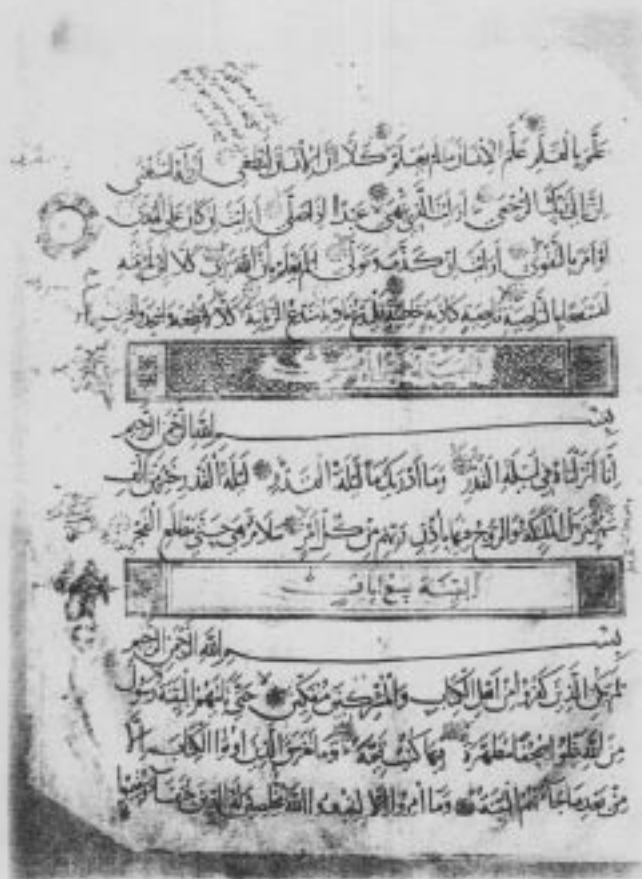 علم بالقلم علم الانسان ما لم يعلم كلا ان الانسان ليطغى ان رآه استغنى
ان الى ربك الرجعى ارايت الذي ينهى عبدا اذا صلى ارايت ان كان على الهدى
او امر بالتقوى ارايت ان كذب وتولى الم يعلم بان الله يرى كلا لئن لم ينته
لنسفعا بالناصية ناصية كاذبة خاطئة فليدع ناديه سندع الزبانية كلا لا تطعه واسجد واقترب
بسم الله الرحمن الرحيم
انا انزلناه في ليلة القدر وما ادريك ما ليلة القدر ليلة القدر خير من الف
شهر تنزل الملئكة والروح فيها باذن ربهم من كل امر سلام هي حتى مطلع الفجر
البينة ايات
بسم الله الرحمن الرحيم
لم يكن الذين كفروا من اهل الكتاب والمشركين منفكين حتى تاتيهم البينة رسول
من الله يتلوا صحفا مطهرة فيها كتب قيمة وما تفرق الذين اوتوا الكتاب الا
من بعد ما جاءتهم البينة وما امروا الا ليعبدوا الله مخلصين له الدين حنفاء ويقيموا